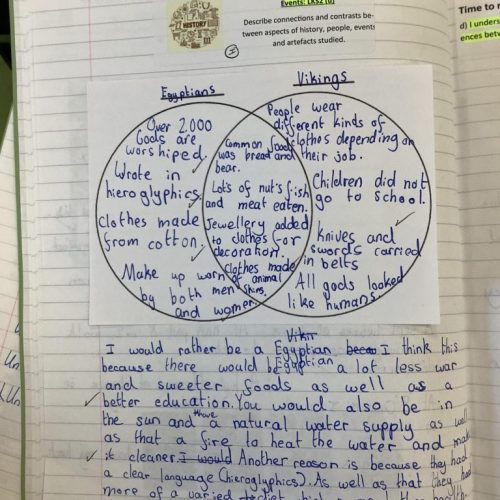 Events: LKS2 (d)
Describe connections and contrasts be-
tween aspects of history, people, events
and artefacts studied.
HISTORY
Time to
d) I unders
ences betw
Egyptians
Vikings
Over 2,000
Gods are
worshiped.
Wrote in
hieroglyphics.
clothes made
from cotton.
Make up worn
by both men
and women.
Common foods
was bread and
bear.
Lots of nut's fish
and meat eaten.
Jewellery added
to clothes for
decoration.
clothes made
of animal
skins.
People wear
different kinds of
clothes depending on
their job.
Children did not
go to school.
knives and
swords carried
in belts
All gods looked
like humans.
Vikit
I would rather be a Egyptian becau I think this
because there would be Egyptian a lot less war
and sweeter foods as well as a
better education. You would also be in
the sun and have a natural water supply as well
as that a fire to heat the water and make
it cleaner. I would Another reason is because they had
a clear language (Hieroglyphics). As well as that they had
more of a varied